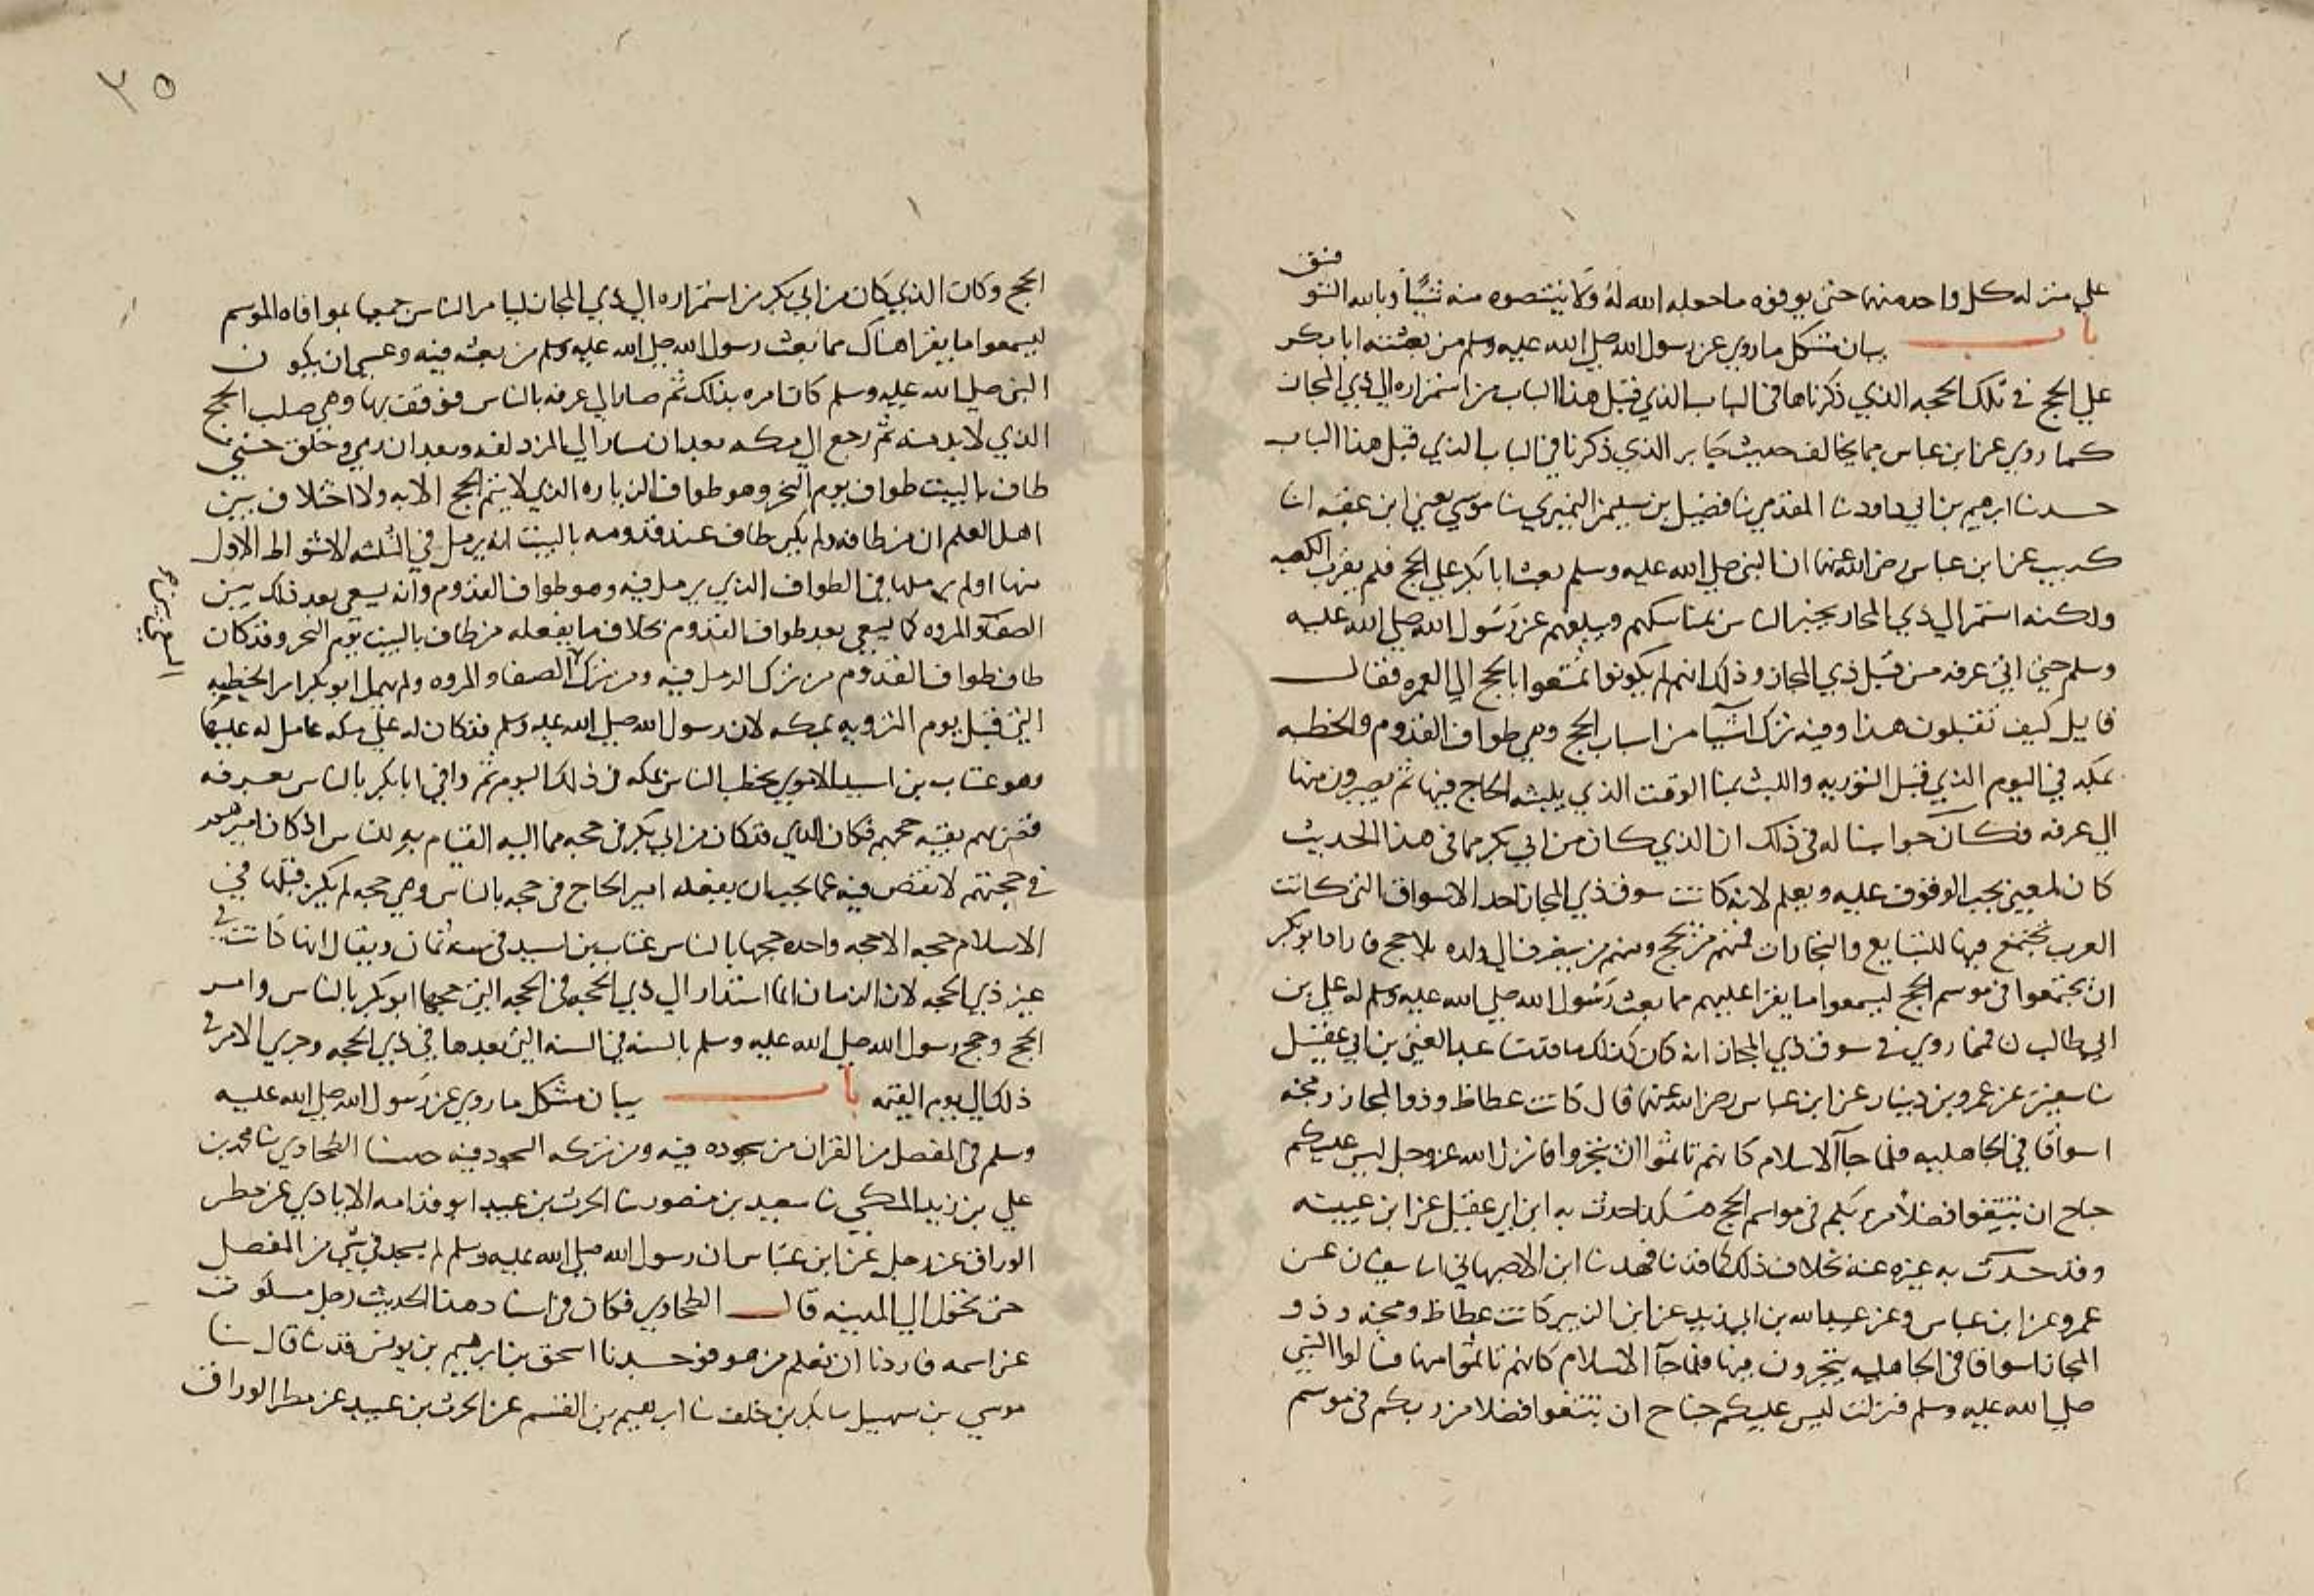 على منزله كل واحده منهما حتى يوفوه ما جعله الله له ولا ينتقصوه منه شيًا وبالله التوفيق
باب بيان مشكل ما روي عن رسول الله صلى الله عليه وسلم من بعثته ابا بكر
على الحج في تلك الحجه الذي ذكرناها في الباب الذي قبل هذا الباب من استمراره الى ذي المجاز
كما روي عن ابن عباس مما يخالف حديث جابر الذي ذكرنا في الباب الذي قبل هذا الباب
حدثنا ابرهيم بن ابي داود نا المقدمي نا فضيل بن سليمن النميري نا موسى يعني ابن عقبه انا
كريب عن ابن عباس رضي الله عنهما ان النبي صلى الله عليه وسلم بعث ابا بكر على الحج فلم يقرب الكعبه
ولكنه استمر الى ذي المجاز يخبر الناس بمناسكهم ويبلغهم عن رسول الله صلى الله عليه
وسلم حتى اتى عرفه من قبل ذي المجاز وذلك انهم لم يكونوا تمتعوا بالحج الى العمره فقال
قايل كيف تقبلون هذا وفيه ترك اشيا من اسباب الحج وهي طواف القدوم والخطبه
بمكه في اليوم الذي قبل الترويه واللبث بمنا الوقت الذي يلبثه الحاج فيها ثم يصيرون منها
الى عرفه فكان جوابنا له في ذلك ان الذي كان من ابي بكر مما في هذا الحديث
كان لمعنى يجب الوقوف عليه ويعلم لانه كانت سوق ذي المجاز احد الاسواق التي كانت
العرب تجتمع فيها للتبايع والتجارات فمنهم من يحج ومنهم من ينفر الى بلده بلا حج فاراد ابو بكر
ان يجتمعوا في موسم الحج ليسمعوا ما يقرا عليهم مما بعث رسول الله صلى الله عليه وسلم له علي بن
ابي طالب ن فمما روي في سوق ذي المجاز انه كان كذلك ما حدثنا عبد الغني بن ابي عقيل
نا سفين عن عمرو بن دينار عن ابن عباس رضي الله عنهما قال كانت عكاظ وذو المجاز ومجنه
اسواقا في الجاهليه فلما جآ الاسلام كانهم تاثموا ان يتجروا فانزل الله عز وجل ليس عليكم
جناح ان تبتغوا فضلا من ربكم في مواسم الحج هكذا حدث به ابن ابي عقيل عن ابن عيينه
وقد حدث به غيره عنه بخلاف ذلك كما حدثنا فهد نا ابن الاصبهاني انا سفيان عن
عمرو عن ابن عباس وعن عبيد الله بن ابي يزيد عن ابن الزبير كانت عكاظ ومجنه وذو
المجاز اسواقا في الجاهليه يتجرون فيها فلما جآ الاسلام كانهم تاثموا منها فسالوا النبي
صلى الله عليه وسلم فنزلت ليس عليكم جناح ان تبتغوا فضلا من ربكم في موسم
٣٥
الحج وكان الذي كان من ابي بكر من استمراره الى ذي المجاز ليامر الناس جميعا بموافاه الموسم
ليسمعوا ما يقرا هناك مما بعث رسول الله صلى الله عليه وسلم من بعثه فيه وعسى ان يكون
النبي صلى الله عليه وسلم كان امره بذلك ثم صار الى عرفه بالناس فوقف بها وهي صلب الحج
الذي لا بد منه ثم رجع الى مكه بعد ان سار الى المزدلفه وبعد ان رمى وحلق حتى
طاف بالبيت طواف يوم النحر وهو طواف الزياره الذي لا يتم الحج الا به ولا اختلاف بين
اهل العلم ان من طافه ولم يكن طاف عند قدومه بالبيت انه يرمل في الثلثه الاشواط الاول
منها اولم يرملها في الطواف الذي يرمل فيه وهو طواف القدوم وانه يسعى بعد ذلك بين
الصفا والمروه كما يسعى بعد طواف القدوم بخلاف ما يفعله من طاف بالبيت يوم النحر وقد كان
طاف طواف القدوم من ترك الرمل فيه ومن ترك الصفا والمروه ولم يهمل ابو بكر امر الخطبه
التي قبل يوم الترويه بمكه لان رسول الله صلى الله عليه وسلم قد كان له على مكه عامل له عليها
وهو عتاب بن اسيد الاموي يخطب الناس بمكه في ذلك اليوم ثم وافى ابا بكر بالناس بعرفه
فقضى لهم بقيه حجهم فكان الذي قد كان من ابي بكر في حجه مما اليه القيام به للناس اذ كان اميرهم
في حجتهم لا نقص فيه عما يجب ان يفعله امير الحاج في حجه بالناس وهي حجه لم يكن قبلها في
الاسلام حجه الا حجه واحده حجها بالناس عتاب بن اسيد في سنه ثمان ويقال انها كانت في
غير ذي الحجه لان الزمان انما استدار الى ذي الحجه في الحجه التي حجها ابو بكر بالناس وامر
الحج وحج رسول الله صلى الله عليه وسلم بالسنه في السنه التي بعدها في ذي الحجه وجرى الامر في
ذلك الى يوم القيمه باب بيان مشكل ما روي عن رسول الله صلى الله عليه
وسلم في المفصل من القران من سجوده فيه ومن تركه السجود فيه حدثنا الطحاوي نا محمد بن
علي بن زيد المكي نا سعيد بن منصور نا الحرث بن عبيد ابو قدامه الايادي عن مطر
الوراق عن رجل عن ابن عباس ان رسول الله صلى الله عليه وسلم لم يسجد في شي من المفصل
حتى تحول الى المدينه قال الطحاوي فكان في اسناد هذا الحديث رجل مسكوت
عن اسمه فاردنا ان نعلم من هو فوجدنا اسحق بن ابرهيم بن يونس قد نا قال نا
موسى بن سهيل نا بكر بن خلف نا ابرهيم بن القسم عن الحرث بن عبيد عن مطر الوراق